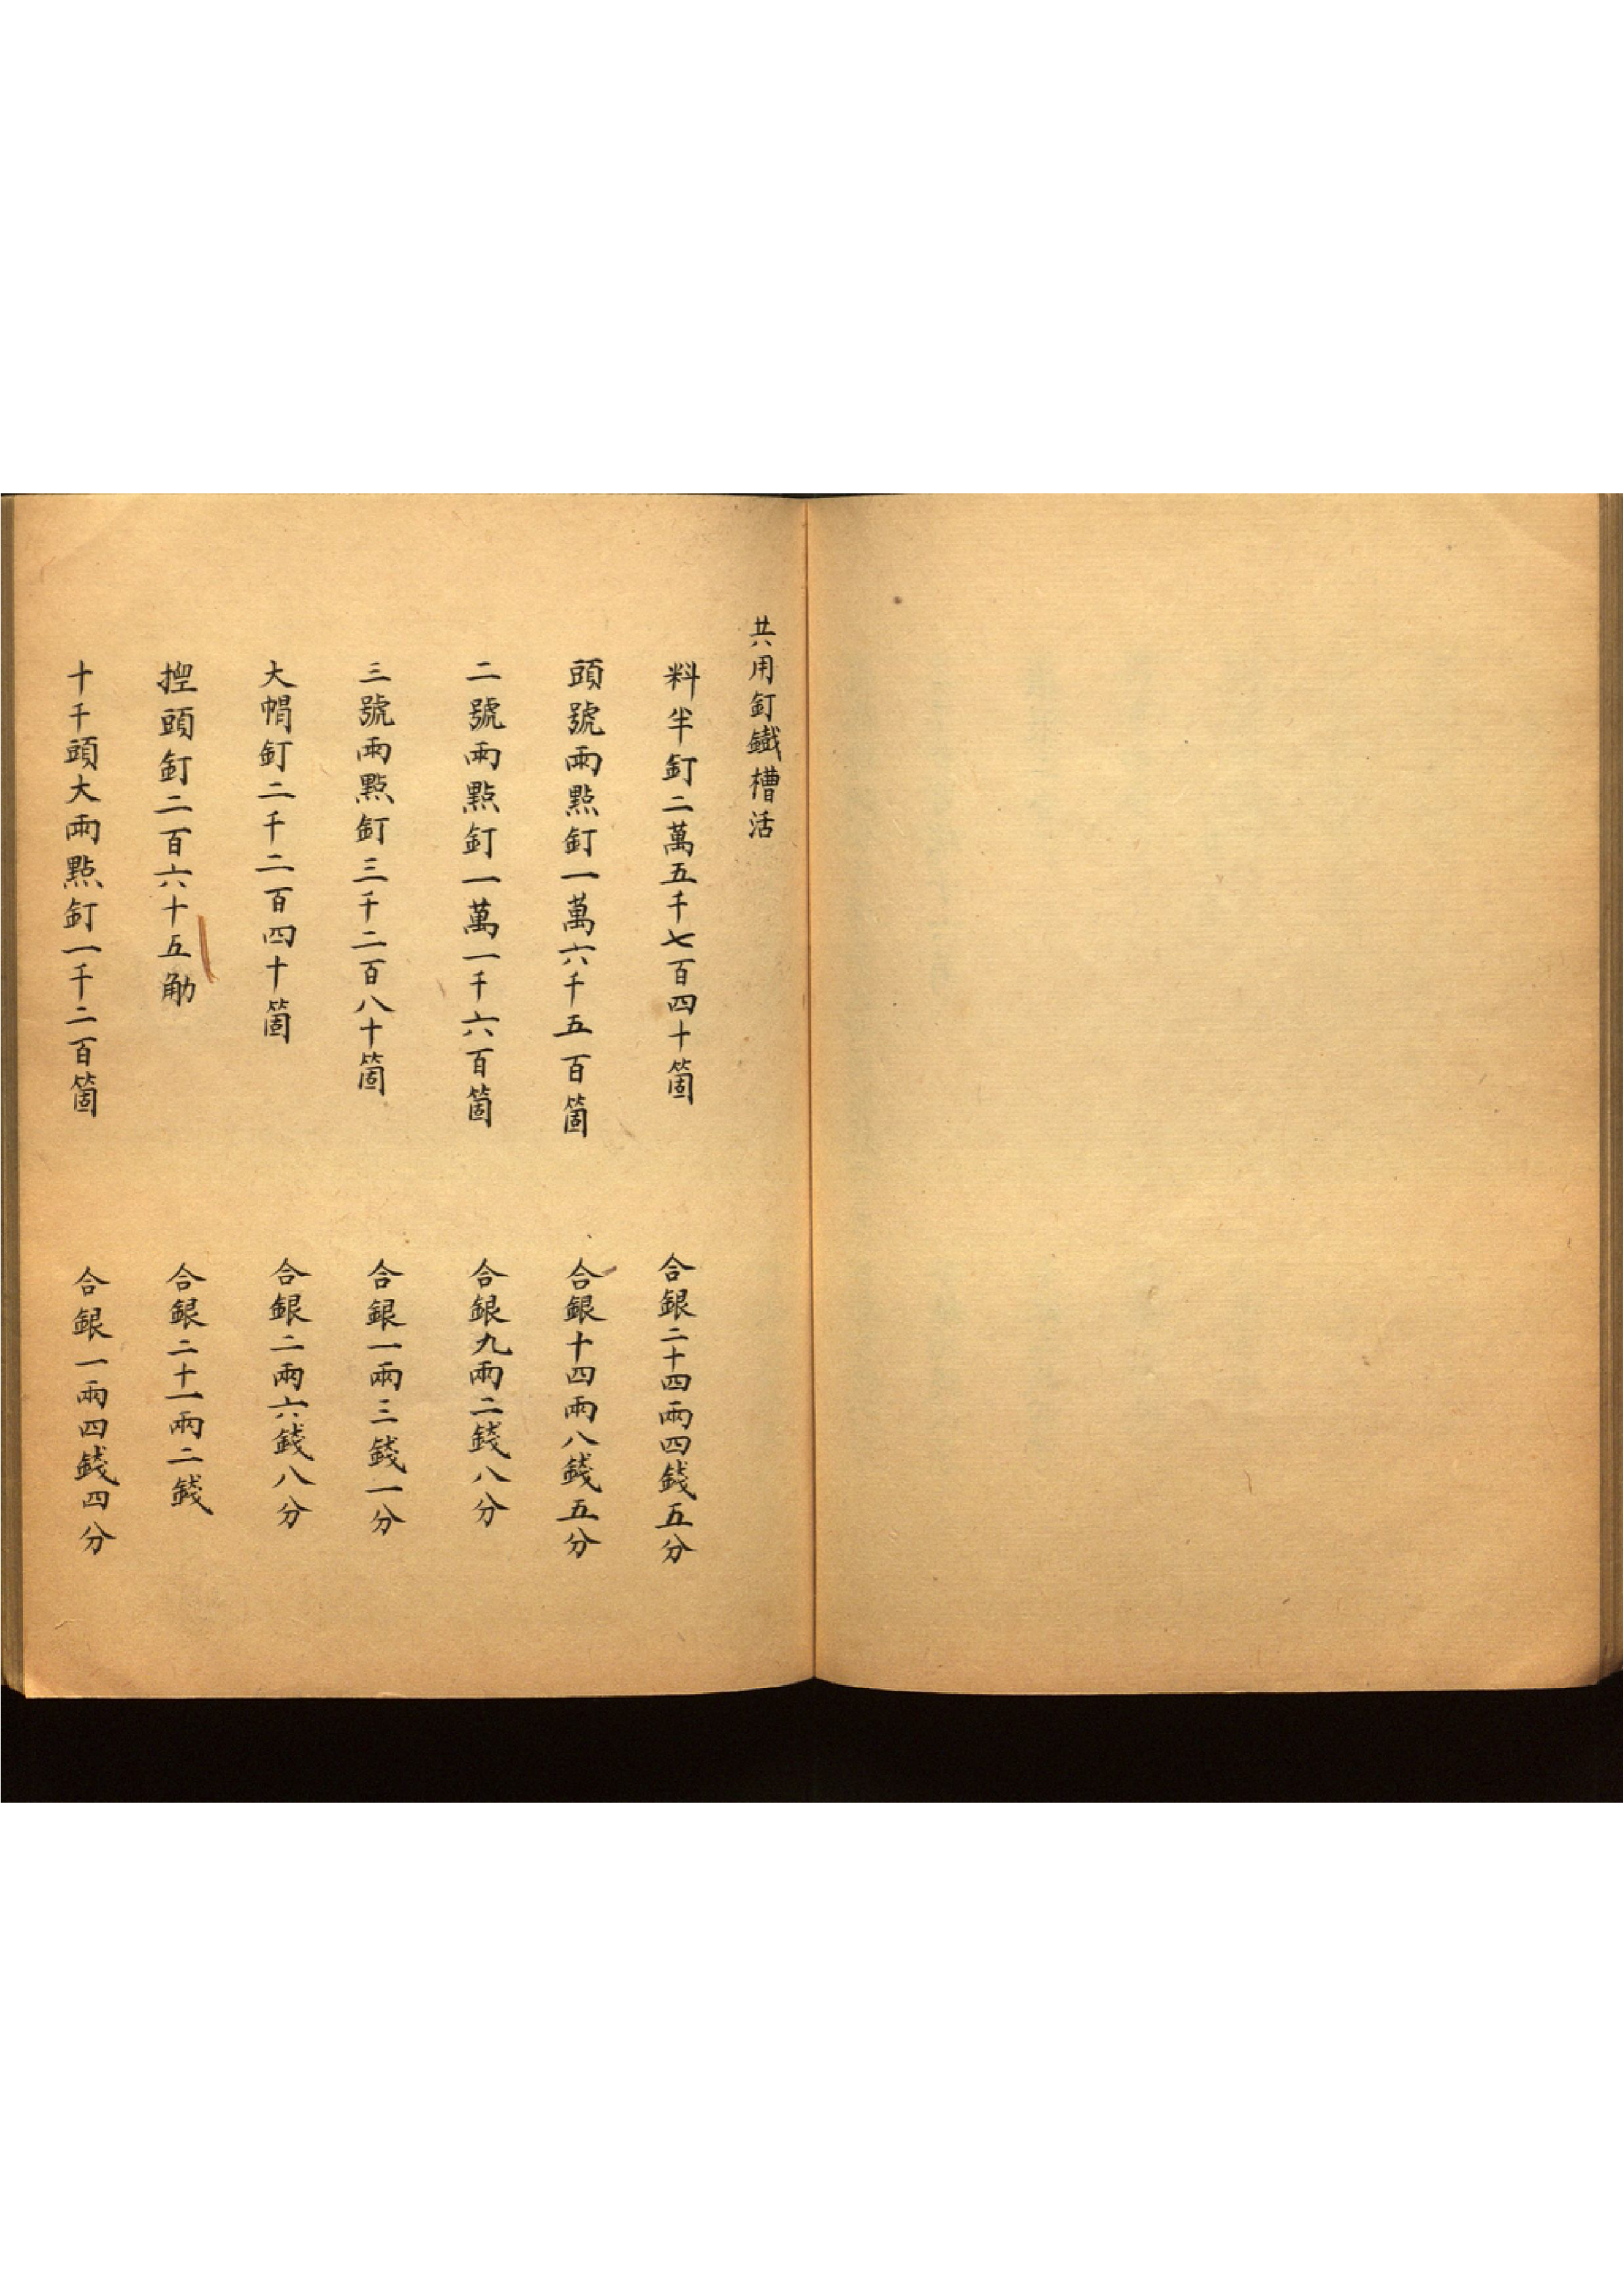 共用釘鐵槽活
料半釘二萬五千七百四十箇 合銀二十四兩四錢五分
頭號兩點釘一萬六千五百箇 合銀十四兩八錢五分
二號兩點釘一萬一千六百箇 合銀九兩二錢八分
三號兩點釘三千二百八十箇 合銀一兩三錢一分
大帽釘二千二百四十箇 合銀二兩六錢八分
挰頭釘二百六十五觔 合銀二十一兩二錢
十千頭大兩點釘一千二百箇 合銀一兩四錢四分